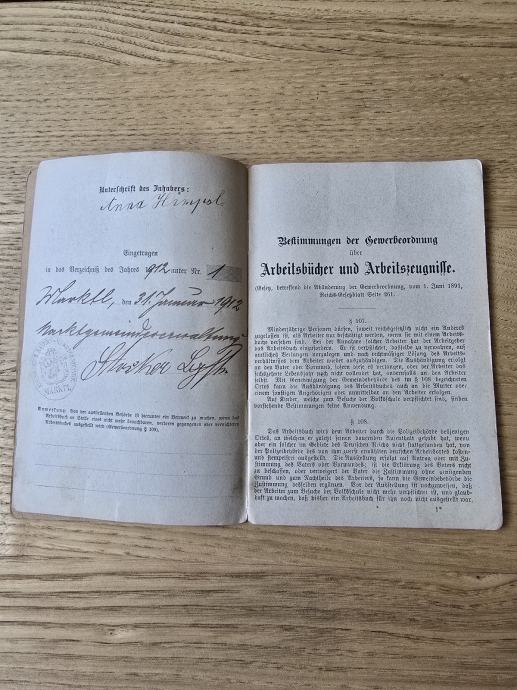 Unterschrift des Inhabers:
Anna Himpsl
Eingetragen
in das Verzeichniß des Jahres 1912 unter Nr. 1
Marktl, den 31. Januar 1912
Marktgemeindeverwaltung
MARKTL
Anmerkung.
Arbeitsbuch an Stelle eines nicht mehr brauchbaren, verloren gegangenen oder vernichteten
Arbeitsbuches ausgestellt
Bestimmungen der Gewerbeordnung
über
Arbeitsbücher und Arbeitszeugnisse.
(Gesetz, betreffend die Abänderung der Gewerbeordnung, vom 1. Juni 1891,
Reichs-Gesetzblatt Seite 261.
§ 107.
Minderjährige Personen dürfen, soweit reichsgesetzlich nicht ein Anderes
zugelassen ist, als Arbeiter nur beschäftigt werden, wenn sie mit einem Arbeits-
buche versehen sind. Bei der Annahme solcher Arbeiter hat der Arbeitgeber
das Arbeitsbuch einzufordern. Er ist verpflichtet, dasselbe zu verwahren, auf
amtliches Verlangen vorzulegen und nach rechtmäßiger Lösung des Arbeits-
verhältnisses dem Arbeiter wieder auszuhändigen. Die Aushändigung erfolgt
an den Vater oder Vormund, sofern diese es verlangen, oder der Arbeiter das
sechszehnte Lebensjahr noch nicht vollendet hat, anderenfalls an den Arbeiter
selbst. Mit Genehmigung der Gemeindebehörde des im § 108 bezeichneten
Ortes kann die Aushändigung des Arbeitsbuches auch an die Mutter oder
einen sonstigen Angehörigen oder unmittelbar an den Arbeiter erfolgen.
Auf Kinder, welche zum Besuche der Volksschule verpflichtet sind, finden
vorstehende Bestimmungen keine Anwendung.
§ 108.
Das Arbeitsbuch wird dem Arbeiter durch die Polizeibehörde desjenigen
Ortes, an welchem er zuletzt seinen dauernden Aufenthalt gehabt hat, wenn
aber ein solcher im Gebiete des Deutschen Reichs nicht stattgefunden hat, von
der Polizeibehörde des von ihm zuerst erwählten deutschen Arbeitsortes kosten-
und stempelfrei ausgestellt. Die Ausstellung erfolgt auf Antrag oder mit Zu-
stimmung des Vaters oder Vormundes; ist die Erklärung des Vaters nicht
zu beschaffen, oder verweigert der Vater die Zustimmung ohne genügenden
Grund und zum Nachtheile des Arbeiters, so kann die Gemeindebehörde die
Zustimmung desselben ergänzen. Vor der Ausstellung ist nachzuweisen, daß
der Arbeiter zum Besuche der Volksschule nicht mehr verpflichtet ist, und glaub-
haft zu machen, daß bisher ein Arbeitsbuch für ihn noch nicht ausgestellt war.
1*